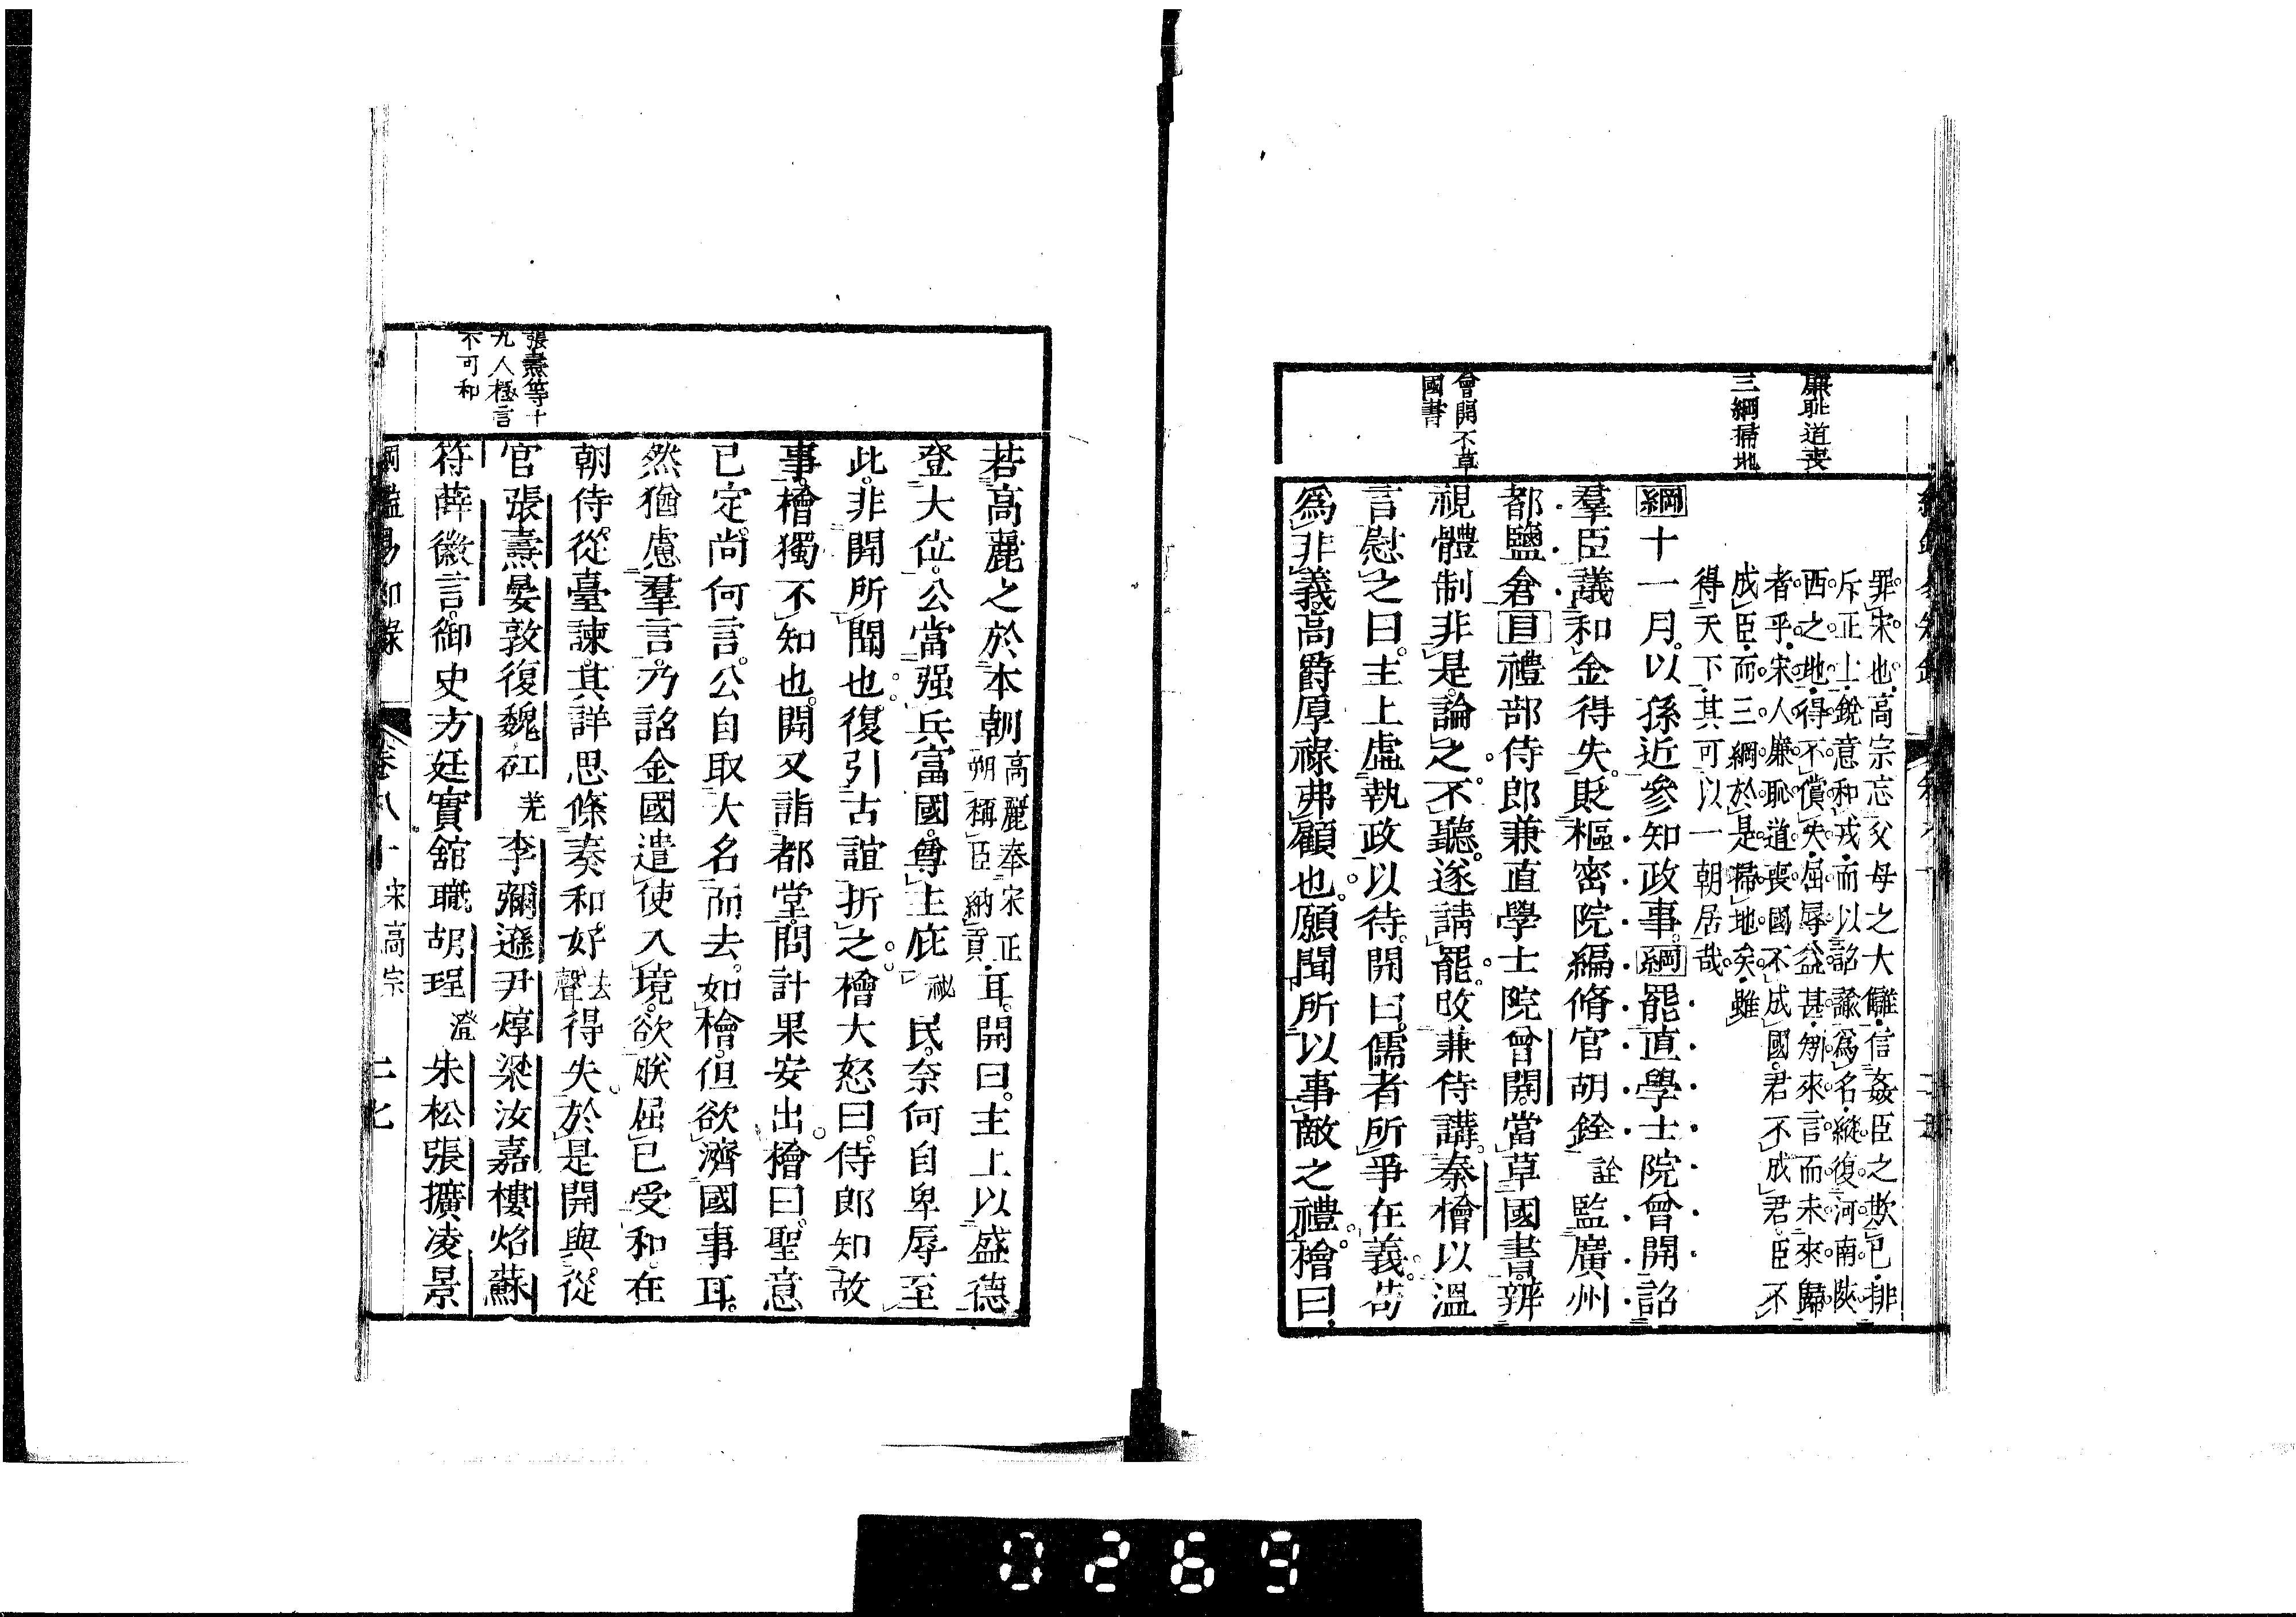 廉耻道喪
三綱掃地
曾開不草
國書
罪宋也高宗忘父母之大讎信姦臣之欺已排
斥正士銳意和戎而以詔諭爲名縱復河南陝
西之地得不償失屈辱益甚矧來言而未來歸
者乎宋人廉恥道喪國不成國君不成君臣不
成臣而三綱於是掃地矣雖
得天下其可以一朝居哉
綱十一月以孫近參知政事綱罷直學士院曾開詔
羣臣議和金得失貶樞密院編脩官胡銓詮監廣州
都鹽倉目禮部侍郎兼直學士院曾開當草國書辨
視體制非是論之不聽遂請罷改兼侍講秦檜以溫
言慰之曰主上虛執政以待開曰儒者所爭在義苟
爲非義高爵厚祿弗顧也願聞所以事敵之禮檜曰
若高麗之於本朝高麗奉宋正朔稱臣納貢耳開曰主上以盛德
登大位公當强兵富國尊主庇祕民奈何自卑辱至
此非開所聞也復引古誼折之檜大怒曰侍郎知故
事檜獨不知也開又詣都堂問計果安出檜曰聖意
已定尚何言公自取大名而去如檜但欲濟國事耳
然猶慮羣言乃詔金國遣使入境欲朕屈已受和在
朝侍從臺諫其詳思條奏和好去聲得失於是開與從
官張燾晏敦復魏矼羌李彌遜尹焞梁汝嘉樓炤蘇
符薛徽言御史方廷實舘職胡珵澄朱松張擴凌景
張燾等十
九人極言
不可和
綱鑑易知錄
卷八十 宋高宗
二七
0269